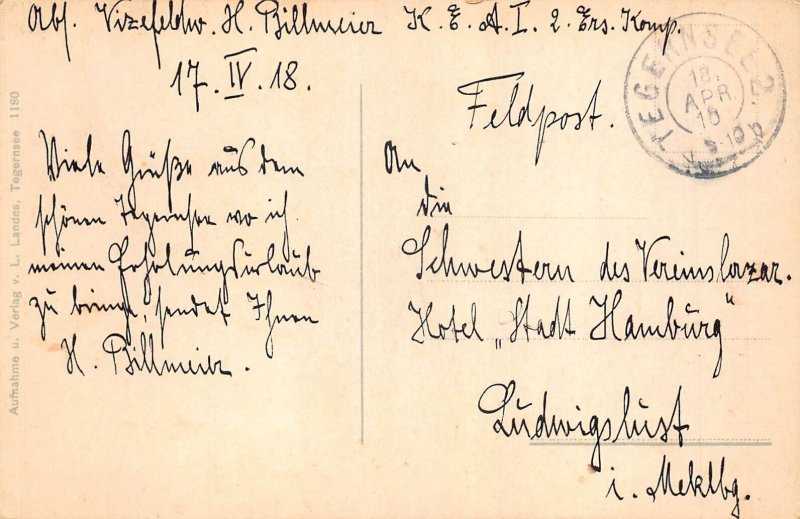 Abs. Vizefeldw. H. Billmeier K. E. A. I. 2. Ers. Komp.
17. IV. 18.
Feldpost.
TEGERNSEE 2.
18.
APR
8-10
Viele Grüße aus dem
schönen Tegernsee wo ich
meinen Erholungsurlaub
zu bringe, sendet Ihnen
H. Billmeier.
An
die
Schwestern des Vereinslazar.
Hotel „Stadt Hamburg"
Ludwigslust
i. Meklbg.
Aufnahme u. Verlag v. L. Landes, Tegernsee 1180